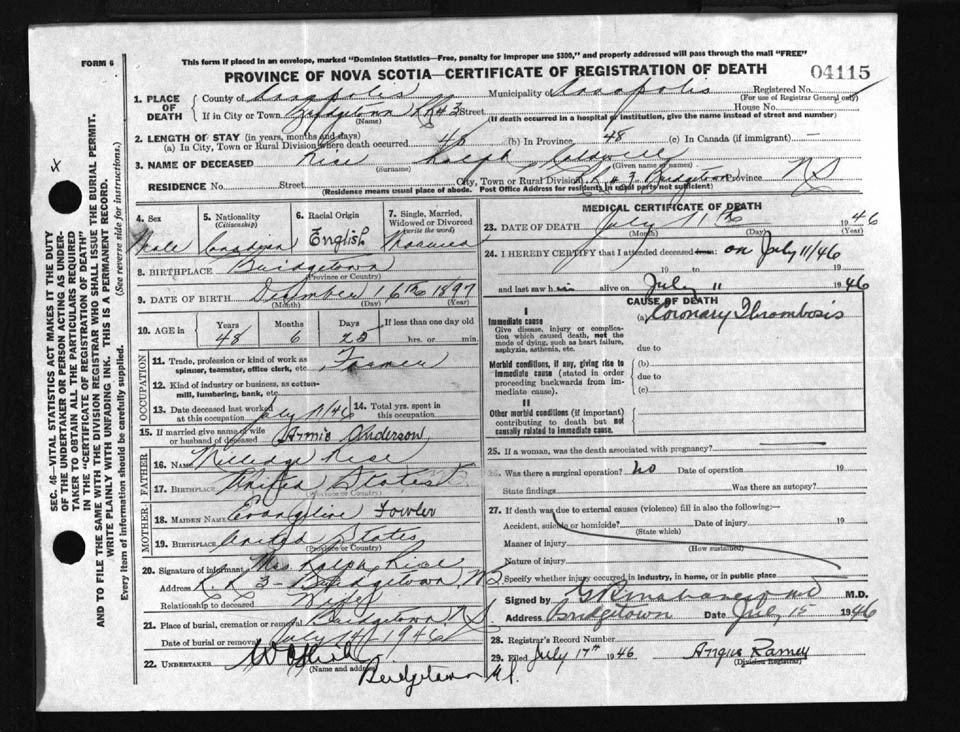 FORM 6
This form if placed in an envelope, marked "Dominion Statistics—Free, penalty for improper use $300," and properly addressed will pass through the mail "FREE"
PROVINCE OF NOVA SCOTIA—CERTIFICATE OF REGISTRATION OF DEATH
04115
1. PLACE OF DEATH County of Annapolis Municipality of Annapolis Registered No.
(For use of Registrar General only)
If in City or Town Bridgetown RR #3 Street House No.
(Name) (If death occurred in a hospital or institution, give the name instead of street and number)
2. LENGTH OF STAY (in years, months and days)
(a) In City, Town or Rural Division where death occurred 48 (b) In Province 48 (c) In Canada (if immigrant) —
3. NAME OF DECEASED Rice Ralph
(Surname) (Given name or names)
RESIDENCE No. Street City, Town or Rural Division R.R # 3 Bridgetown Province N S
(Residence means usual place of abode. Post Office Address for residents in rural parts not sufficient)
4. Sex Male
5. Nationality (Citizenship) Canadian
6. Racial Origin English
7. Single, Married, Widowed or Divorced (write the word) Married
8. BIRTHPLACE Bridgetown
(Province or Country)
9. DATE OF BIRTH December 16th 1897
(Month) (Day) (Year)
10. AGE in Years Months Days If less than one day old
48 6 25 hrs. or min.
OCCUPATION
11. Trade, profession or kind of work as spinner, teamster, office clerk, etc. Farmer
12. Kind of industry or business, as cotton-mill, lumbering, bank, etc.
13. Date deceased last worked at this occupation July 11/46 14. Total yrs. spent in this occupation.
15. If married give name of wife or husband of deceased Annie Anderson
FATHER
16. NAME Milledge Rice
17. BIRTHPLACE United States
(Province or Country)
MOTHER
18. MAIDEN NAME Evangeline Fowler
19. BIRTHPLACE United States
(Province or Country)
20. Signature of informant Mrs Ralph Rice
Address R. R. 3 - Bridgetown, NS
Relationship to deceased Wife
21. Place of burial, cremation or removal Bridgetown N.S.
Date of burial or removal July 14 1946
22. UNDERTAKER
(Name and address)
Bridgetown N.S.
MEDICAL CERTIFICATE OF DEATH
23. DATE OF DEATH July 11th 1946
(Month) (Day) (Year)
24. I HEREBY CERTIFY that I attended deceased from: on July 11/46
19 to 19
and last saw him alive on July 11 1946
CAUSE OF DEATH
I
Immediate cause (a) Coronary Thrombosis
Give disease, injury or complication which caused death, not the mode of dying, such as heart failure, asphyxia, asthenia, etc.
due to
Morbid conditions, if any, giving rise to immediate cause (stated in order proceeding backwards from immediate cause).
(b)
due to
(c)
II
Other morbid conditions (if important) contributing to death but not causally related to immediate cause.
25. If a woman, was the death associated with pregnancy?
26. Was there a surgical operation? No Date of operation 19
State findings Was there an autopsy?
27. If death was due to external causes (violence) fill in also the following:—
Accident, suicide or homicide? Date of injury 19
(State which)
Manner of injury
(How sustained)
Nature of injury
Specify whether injury occurred in industry, in home, or in public place
Signed by M.D.
Address Bridgetown Date July 15 1946
28. Registrar's Record Number
29. Filed July 17th 1946 Angus Ramey
(Division Registrar)
SEC. 46—VITAL STATISTICS ACT MAKES IT THE DUTY
OF THE UNDERTAKER OR PERSON ACTING AS UNDER-
TAKER TO OBTAIN ALL THE PARTICULARS REQUIRED
IN THE "CERTIFICATE OF REGISTRATION OF DEATH"
AND TO FILE THE SAME WITH THE DIVISION REGISTRAR WHO SHALL ISSUE THE BURIAL PERMIT.
WRITE PLAINLY WITH UNFADING INK. THIS IS A PERMANENT RECORD.
Every item of information should be carefully supplied. (See reverse side for instructions.)